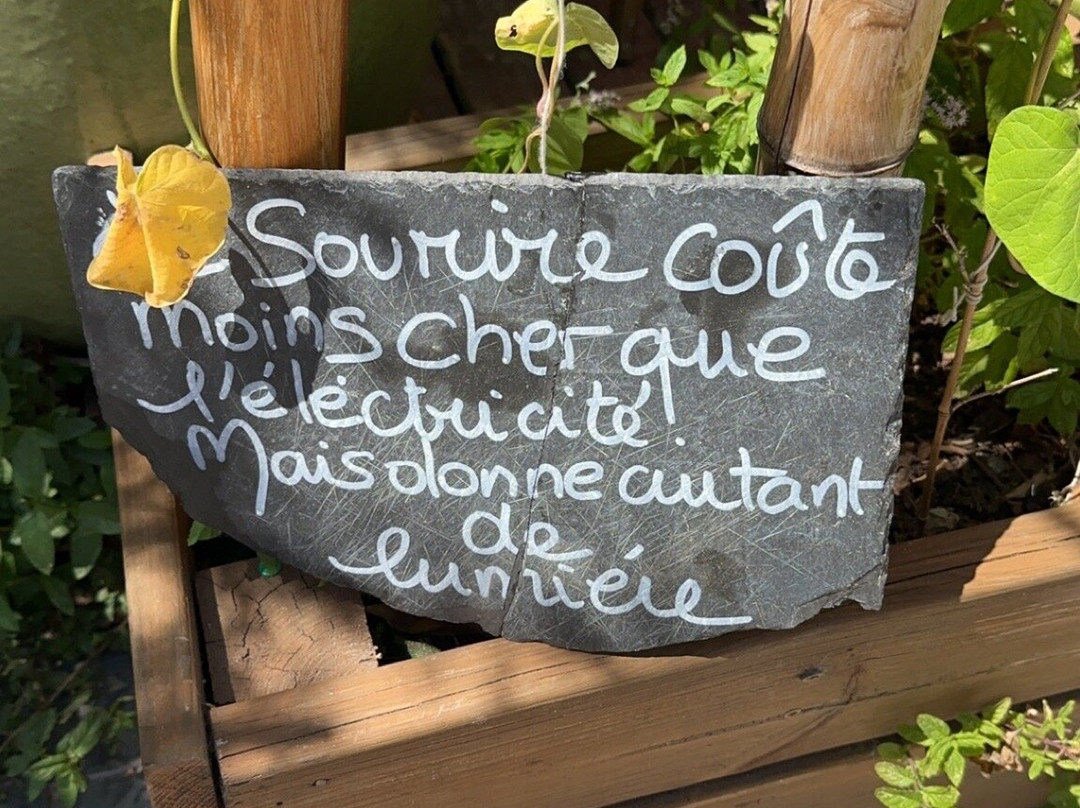 Sourire coûte
moins cher que
l'électricité
Mais donne autant
de
lumiére